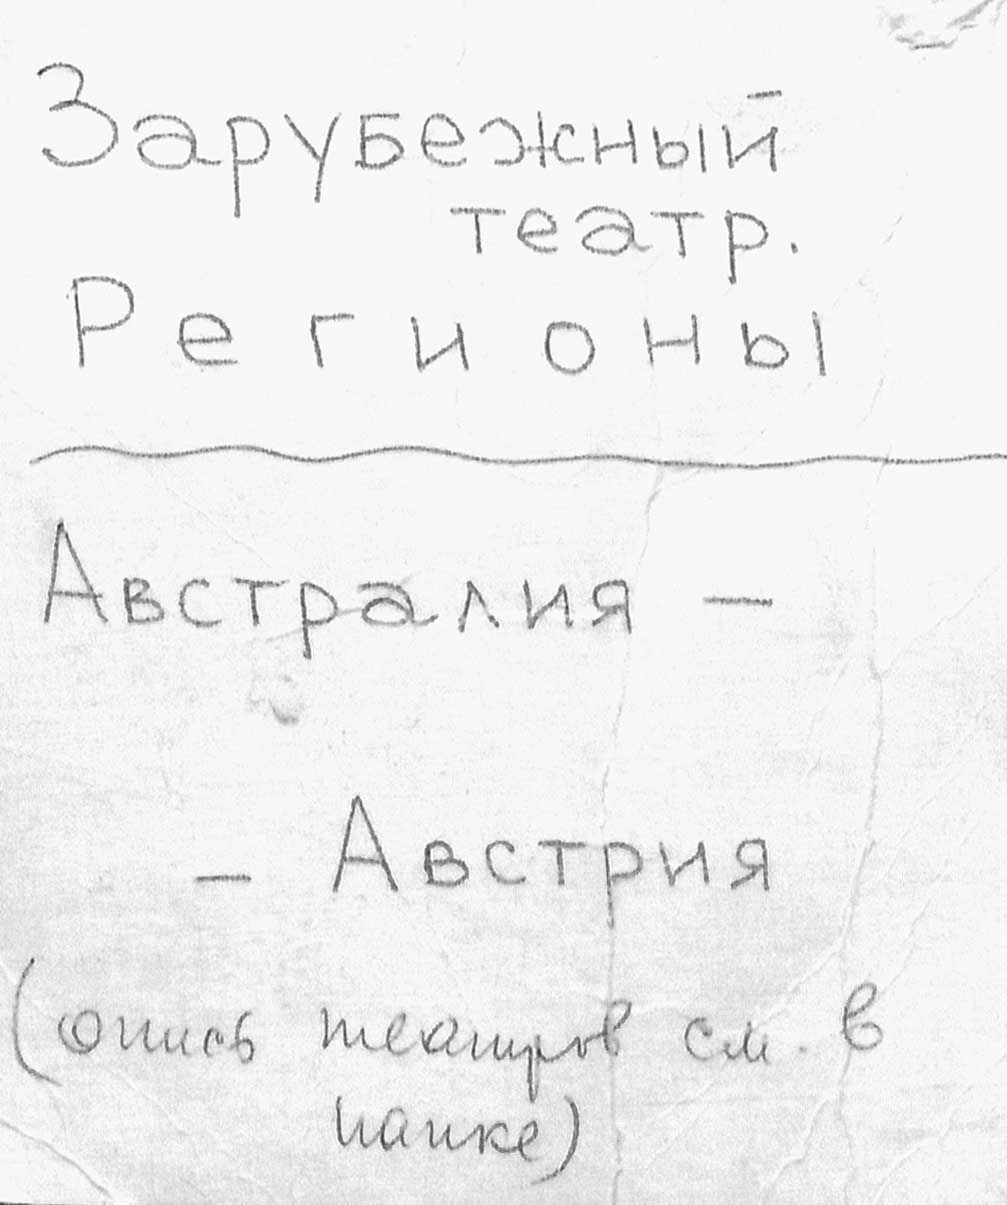 Зарубежный
театр.
Регионы
Австралия –
– Австрия
(опись театров см. в
папке)